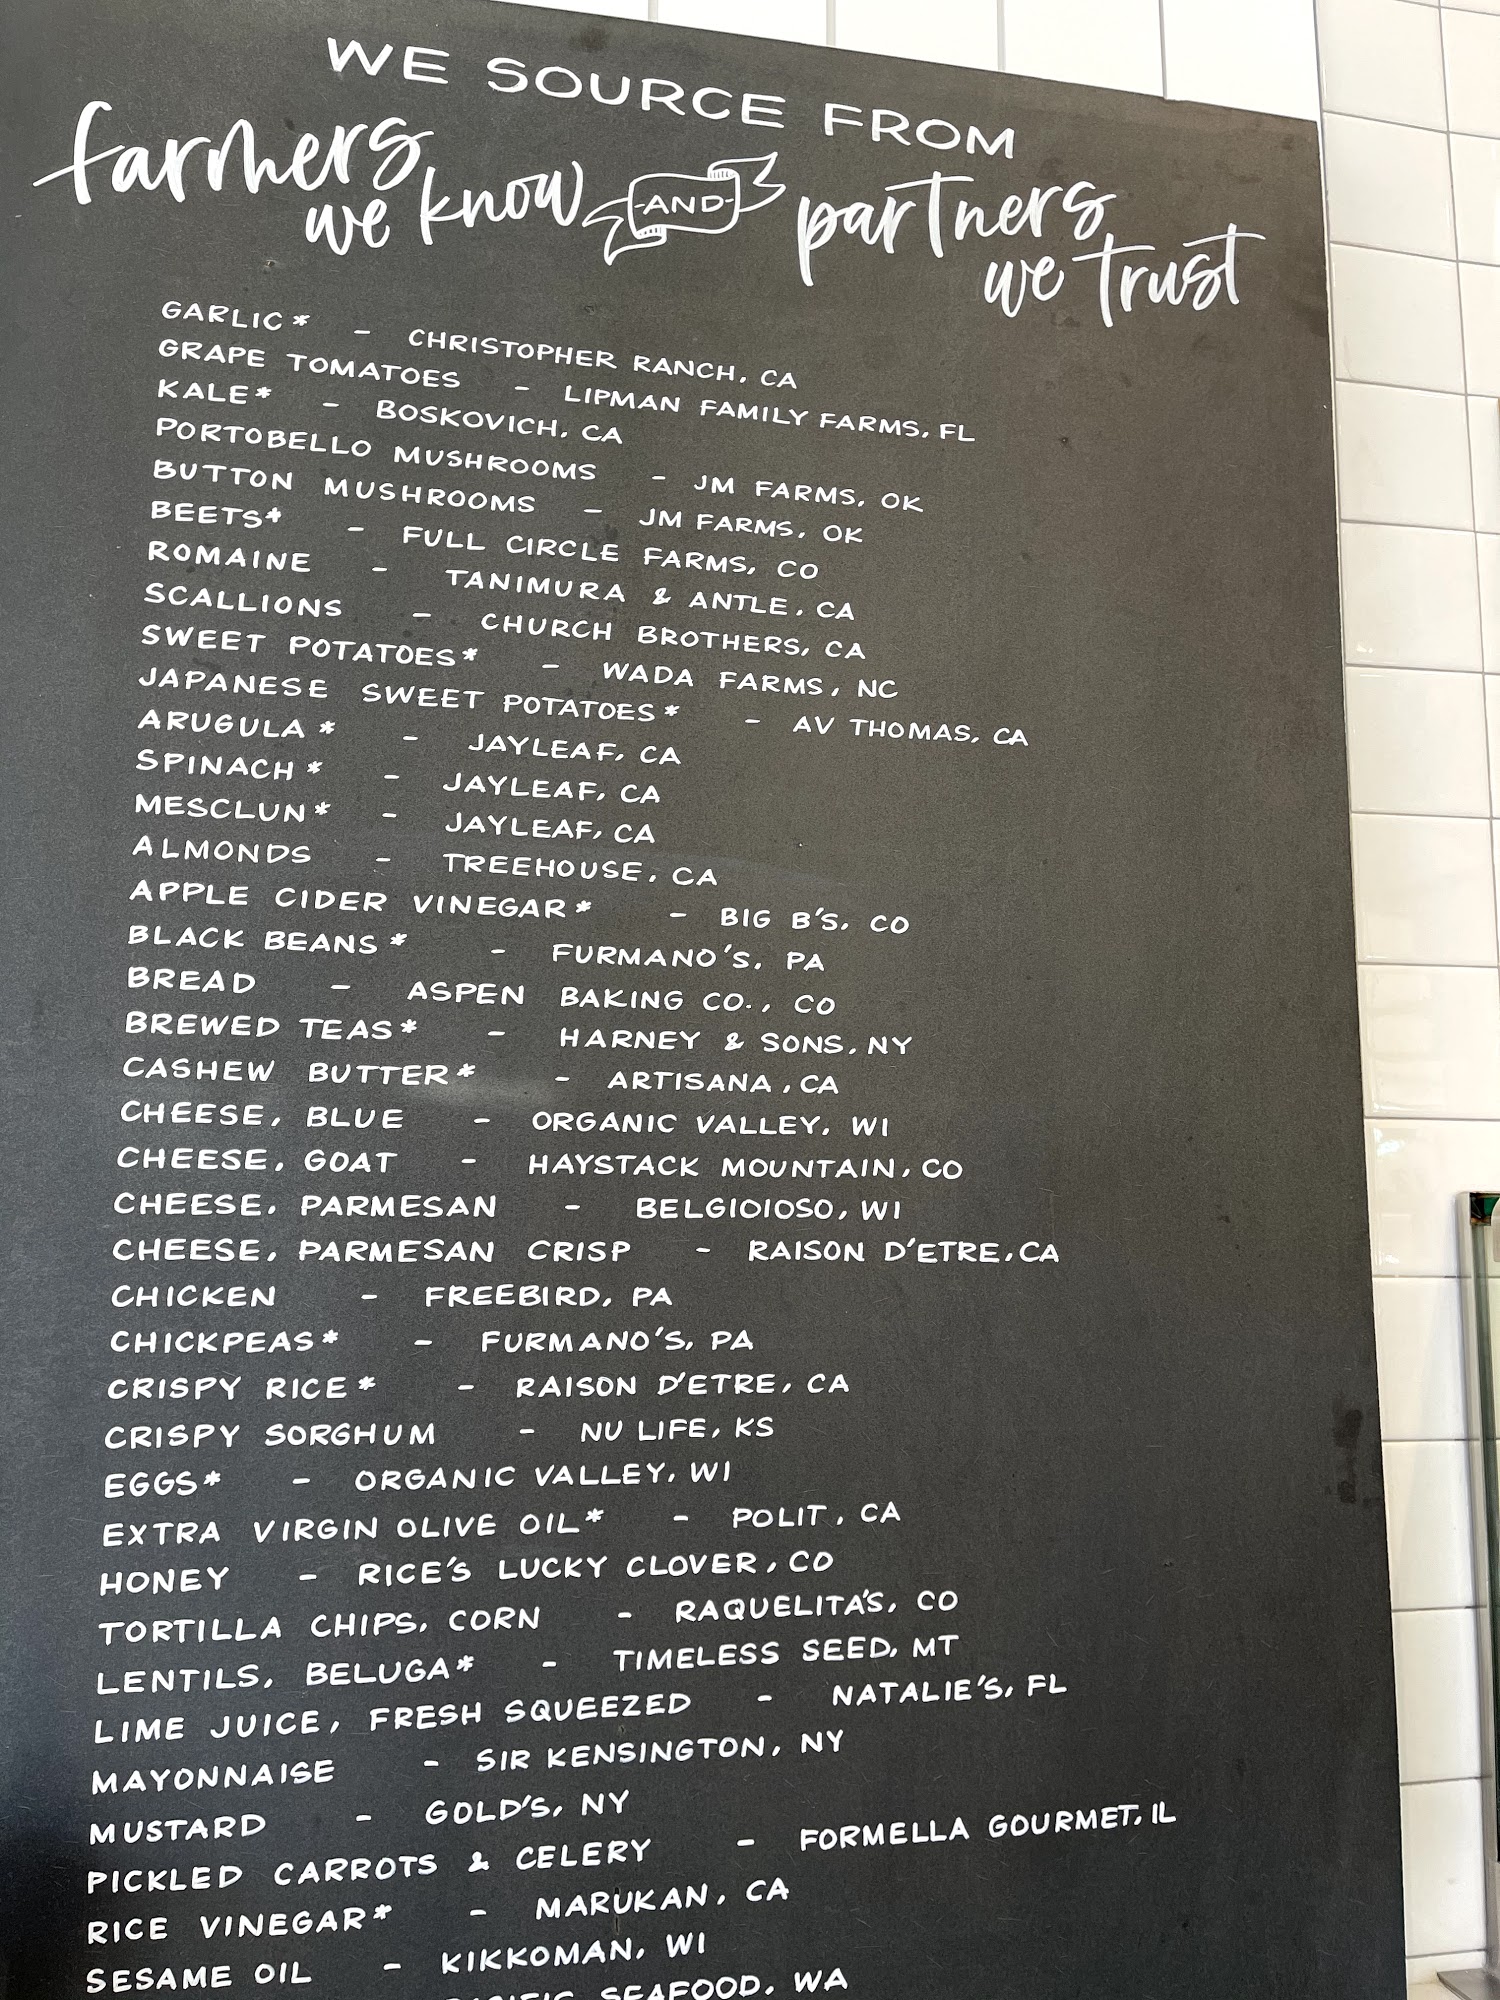 WE SOURCE FROM
farmers we know -AND- partners we trust
GARLIC* - CHRISTOPHER RANCH, CA
GRAPE TOMATOES - LIPMAN FAMILY FARMS, FL
KALE* - BOSKOVICH, CA
PORTOBELLO MUSHROOMS - JM FARMS, OK
BUTTON MUSHROOMS - JM FARMS, OK
BEETS* - FULL CIRCLE FARMS, CO
ROMAINE - TANIMURA & ANTLE, CA
SCALLIONS - CHURCH BROTHERS, CA
SWEET POTATOES* - WADA FARMS, NC
JAPANESE SWEET POTATOES* - AV THOMAS, CA
ARUGULA* - JAYLEAF, CA
SPINACH* - JAYLEAF, CA
MESCLUN* - JAYLEAF, CA
ALMONDS - TREEHOUSE, CA
APPLE CIDER VINEGAR* - BIG B'S, CO
BLACK BEANS* - FURMANO'S, PA
BREAD - ASPEN BAKING CO., CO
BREWED TEAS* - HARNEY & SONS, NY
CASHEW BUTTER* - ARTISANA, CA
CHEESE, BLUE - ORGANIC VALLEY, WI
CHEESE, GOAT - HAYSTACK MOUNTAIN, CO
CHEESE, PARMESAN - BELGIOIOSO, WI
CHEESE, PARMESAN CRISP - RAISON D'ETRE, CA
CHICKEN - FREEBIRD, PA
CHICKPEAS* - FURMANO'S, PA
CRISPY RICE* - RAISON D'ETRE, CA
CRISPY SORGHUM - NU LIFE, KS
EGGS* - ORGANIC VALLEY, WI
EXTRA VIRGIN OLIVE OIL* - POLIT, CA
HONEY - RICE'S LUCKY CLOVER, CO
TORTILLA CHIPS, CORN - RAQUELITA'S, CO
LENTILS, BELUGA* - TIMELESS SEED, MT
LIME JUICE, FRESH SQUEEZED - NATALIE'S, FL
MAYONNAISE - SIR KENSINGTON, NY
MUSTARD - GOLD'S, NY
PICKLED CARROTS & CELERY - FORMELLA GOURMET, IL
RICE VINEGAR* - MARUKAN, CA
SESAME OIL - KIKKOMAN, WI
SEAFOOD, WA